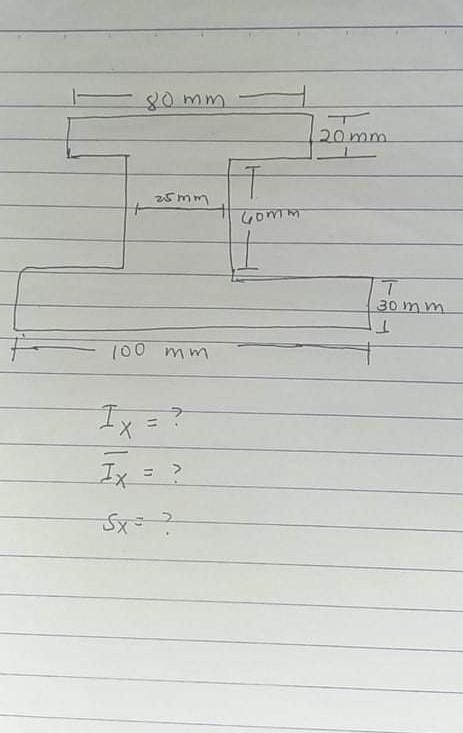 80 mm
20mm
25mm
40mm
30mm
100 mm
Ix = ?
I̅x = ?
Sx = ?